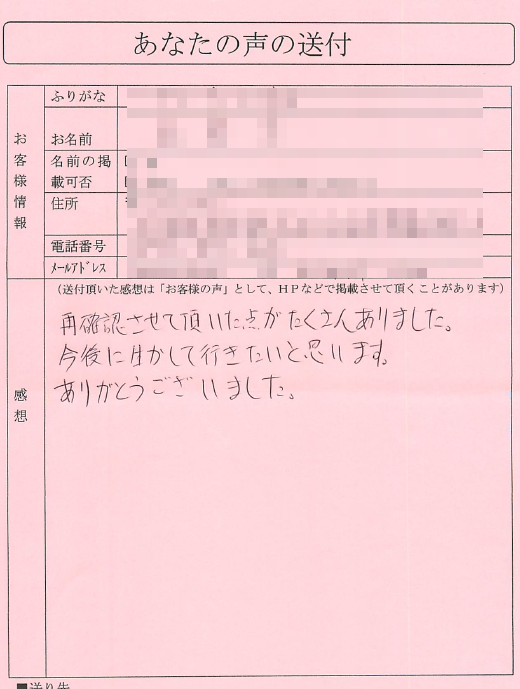 あなたの声の送付
お客様情報
ふりがな
お名前
名前の掲
載可否
住所
電話番号
メールアドレス
(送付頂いた感想は「お客様の声」として、HPなどで掲載させて頂くことがあります)
感想
再確認させて頂いた点がたくさんありました。
今後に活かして行きたいと思います。
ありがとうございました。
■送り先